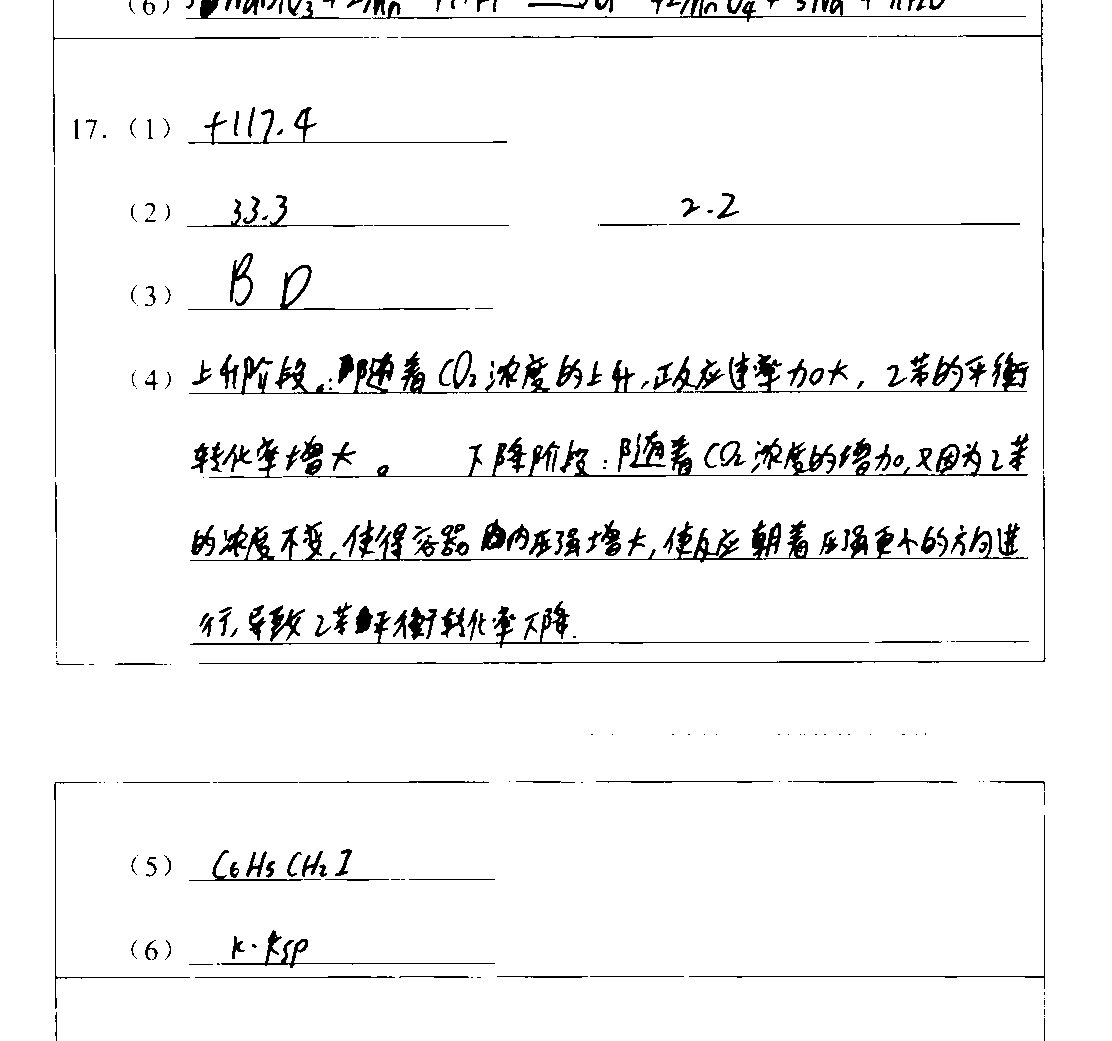 (6) NaBiO₃ + 2Mn
17. (1) +117.4
(2) 33.3 2.2
(3) B D
(4) 上升阶段：即随着CO₂浓度的上升,正反应速率加大，乙苯的平衡
转化率增大。 下降阶段：随着CO₂浓度的增加,又因为乙苯
的浓度不变,使得容器内压强增大,使反应朝着压强更小的方向进
行,导致乙苯平衡转化率下降.
(5) C₆H₅CH₂I
(6) K·Ksp